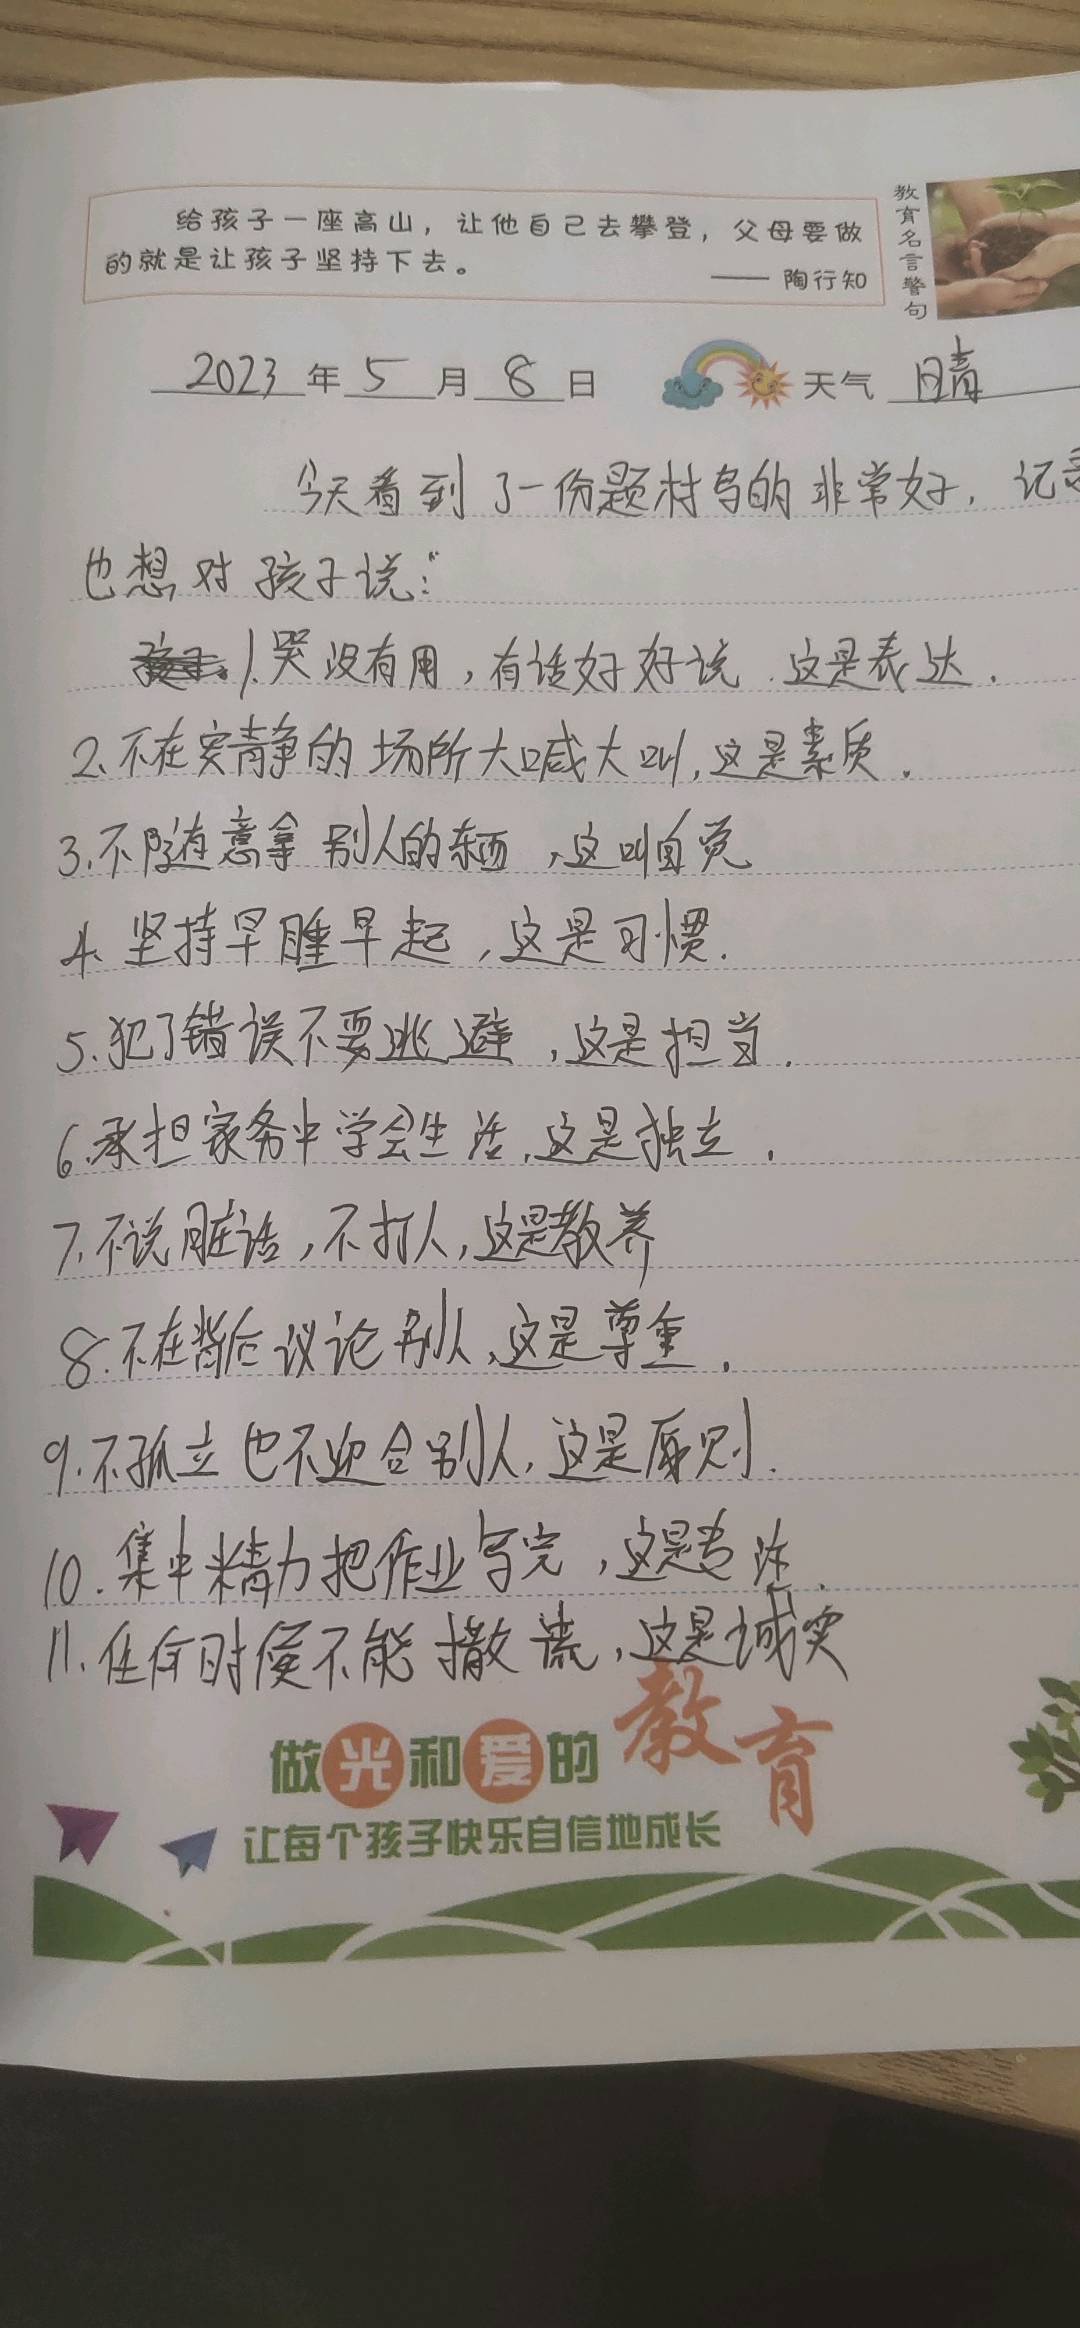 给孩子一座高山，让他自己去攀登，父母要做
的就是让孩子坚持下去。
——陶行知
教育名言警句
2023年5月8日 天气 晴
今天看到了一份题材写的非常好，记录
也想对孩子说："
1.哭没有用，有话好好说.这是表达.
2.不在安静的场所大喊大叫,这是素质.
3.不随意拿别人的东西,这叫自觉
4.坚持早睡早起,这是习惯.
5.犯了错误不要逃避,这是担当.
6.承担家务中学会生活,这是独立.
7.不说脏话,不打人,这是教养
8.不在背后议论别人,这是尊重.
9.不孤立也不迎合别人,这是原则.
10.集中精力把作业写完,这是专注.
11.任何时候不能撒谎,这是诚实
做光和爱的教育
让每个孩子快乐自信地成长